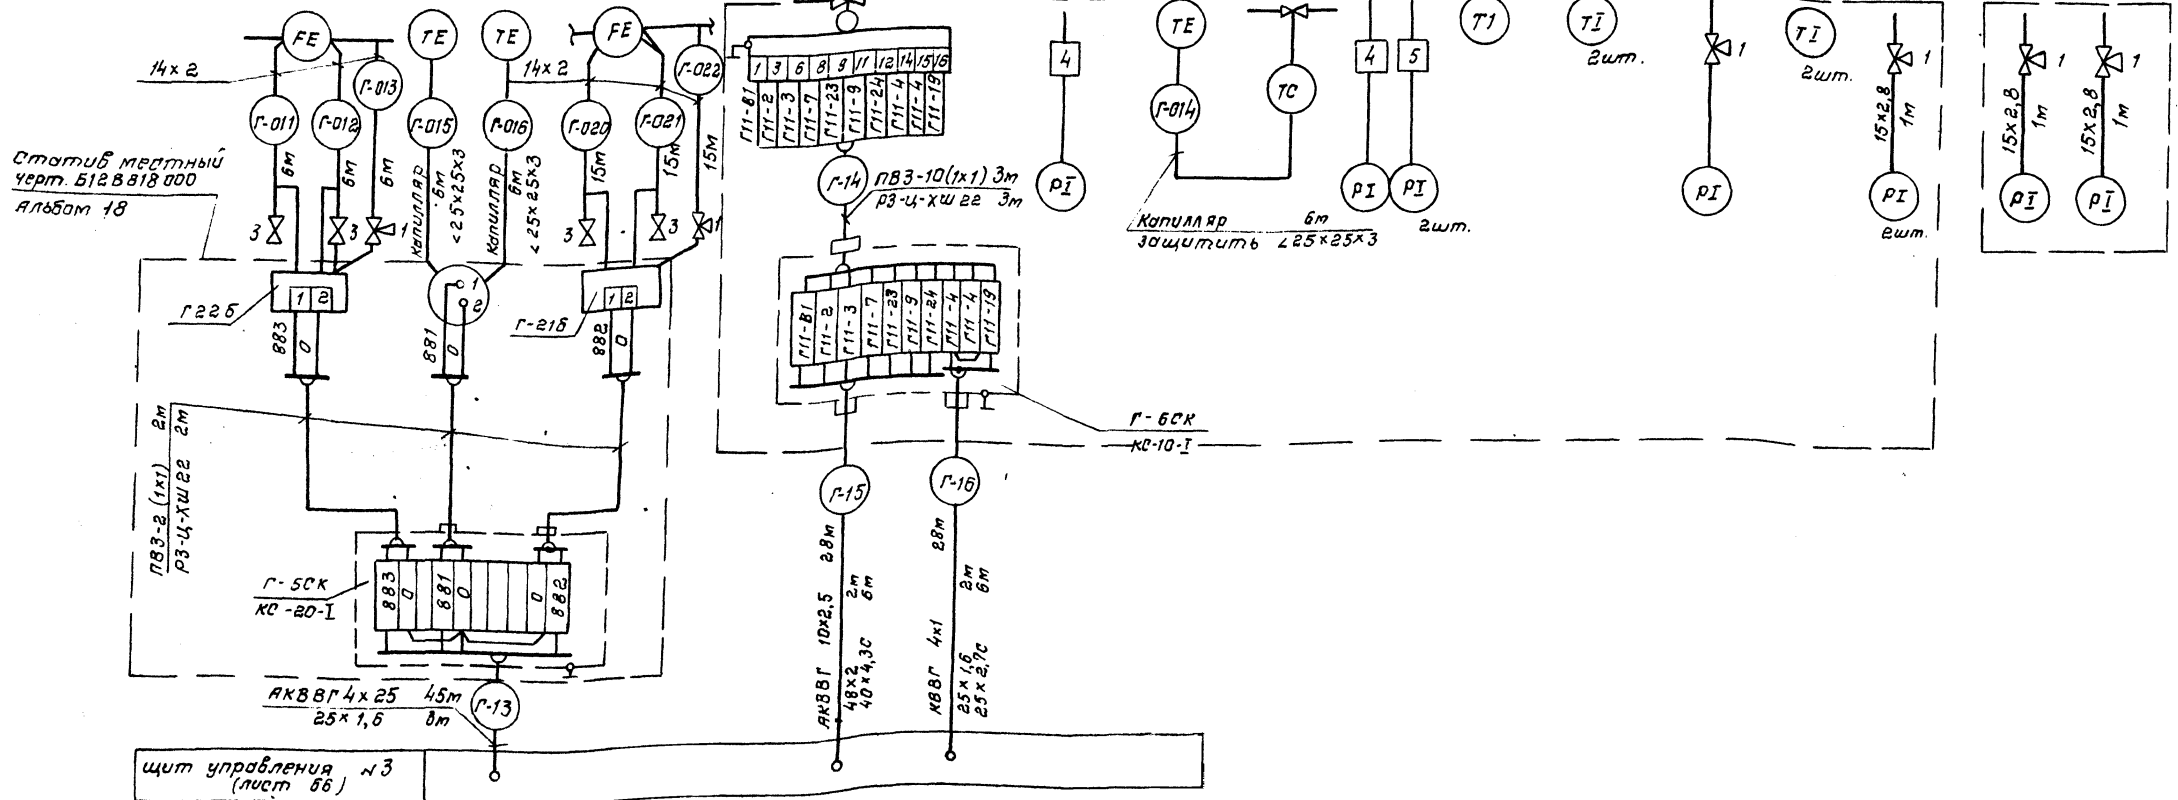 FE
TE
TE
FE
14×2
14×2
Г-013
Г-022
Г-011
Г-012
Г-015
Г-016
Г-020
Г-021
6м
6м
6м
15м
15м
15м
Капилляр
6м
<25×25×3
Капилляр
6м
<25×25×3
Статив местный
черт. Б12В818 000
Альбом 18
3
3
1
3
3
1
Г22б
1 2
1
2
Г-21б
1 2
883
0
881
0
882
0
ПВ3-2 (1×1) 2м
РЗ-Ц-ХШ22 2м
Г-5СК
КС-20-I
883 0 881 0 0 882
АКВВГ 4×25 45м
25×1,6 8м
Г-13
щит управления №3
(лист 56)
1 3 6 8 9 11 12 14 15 16
Г11-В1
Г11-2
Г11-3
Г11-7
Г11-23
Г11-9
Г11-24
Г11-4
Г11-4
Г11-19
Г-14
ПВ3-10(1×1) 3м
РЗ-Ц-ХШ22 3м
Г11-В1
Г11-2
Г11-3
Г11-7
Г11-23
Г11-9
Г11-24
Г11-4
Г11-4
Г11-19
Г-6СК
КС-10-I
Г-15
Г-16
АКВВГ 10×2,5 28м
48×2 2м
40×4,3С 6м
КВВГ 4×1 28м
25×1,6 2м
25×2,7С 6м
4
PI
TE
Г-014
TC
Капилляр 6м
защитить <25×25×3
4
5
PI
PI
2шт.
TI
TI
2шт.
1
PI
TI
2шт.
1
15×2,8
1м
PI
2шт.
1
15×2,8
1м
PI
1
15×2,8
1м
PI